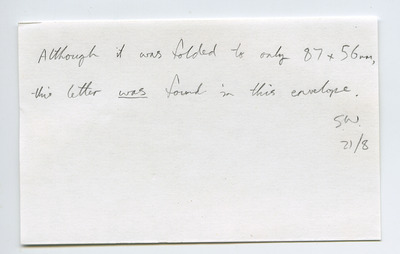 Although it was folded to only 87 x 56mm,
this letter was found in this envelope.
SW.
21/8